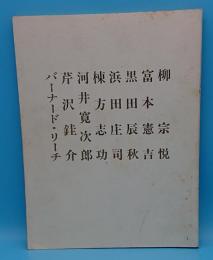 柳宗悦
富本憲吉
黒田辰秋
浜田庄司
棟方志功
河井寛次郎
芹沢銈介
バーナード・リーチ